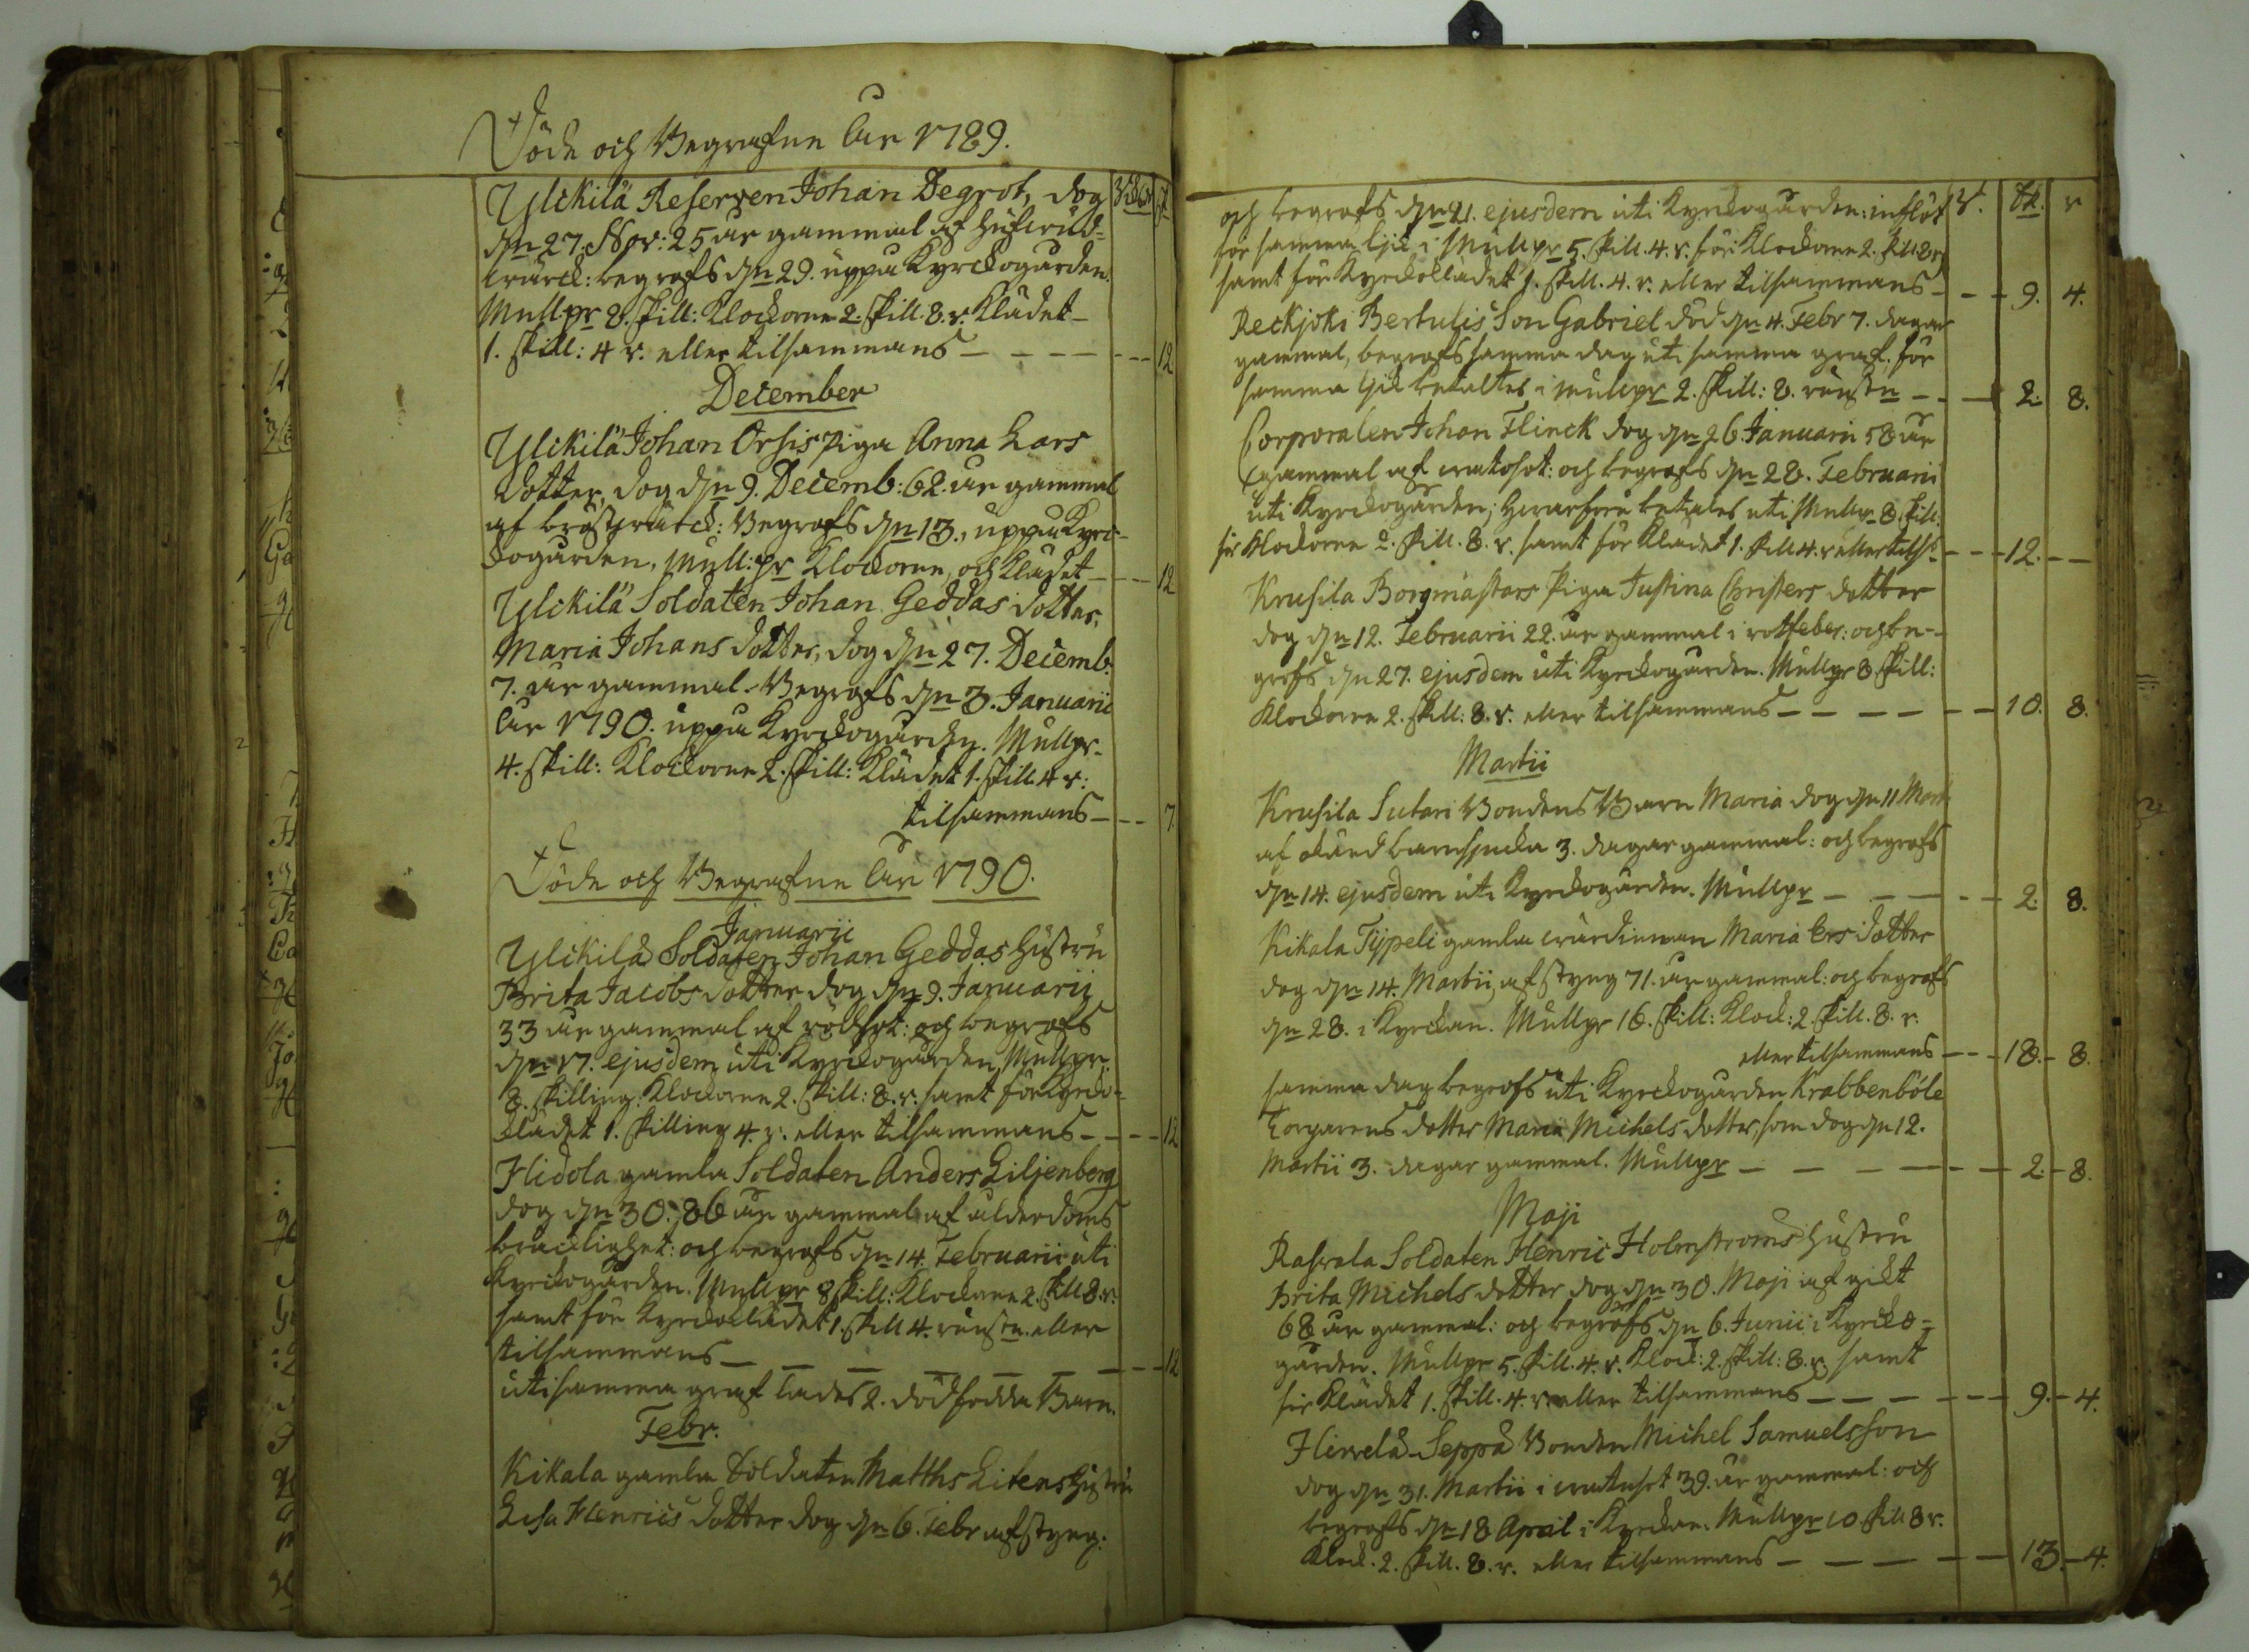 Döde och Begrafne Åhr 1789.
Ylikilä Reserven Johan Degrot, dog
dn 27. Nov: 25 år gammal af hufvud-
wärck: begrofs dn 29. uppå Kyrckogården.
Mullpr 8. skill: Klockorne 2. skill. 8. r. Klädet
1. skill: 4 r. eller tilsammans - - - - 12
December
Ylikilä Johan Orsis piga Anna Lars
dotter, dog dn 9. Decemb: 62. år gammal
af bröstwärck: Begrofs dn 13. uppå Kyrc-
kogården, Mull:pr Klockorne, och Klädet - - 12
Ylikilä Soldaten Johan Geddas dotter,
Maria Johans dotter, dog dn 27. Decemb.
7. år gammal. Begrofs dn 3. Januarii
Åhr 1790. uppå Kyrckogården. Mullpr.
4. skill: Klockorne 2. skill: Klädet 1. skill. 4 r:
tilsammans - - - 7.
Döde och Begrafne Åhr 1790.
Januarii
Ylikilä Soldaten Johan Geddas hustru
Brita Jacobs dotter dog dn 9. Januarii
33 år gammal af rödsot: och begrofs
dn 17. ejusdem uti Kyrckogården, Mullpr.
8. skilling: Klockorne 2. skill: 8. r. samt för Kyrcko-
klädet 1. skilling 4. r. eller tilsammans - - - 12
Hidola gamla Soldaten Anders Liljenberg
dog dn 30. 86 år gammal af ålderdoms
bräcklighet: och begrofs dn 14. Februarii uti
Kyrckogården. Mullpr 8 skill: Klockorne 2. skill 8. r.
samt för Kyrckoklädet 1. skill 4. runstn. eller
tilsammans - - - - - - 12
uti samma graf lades 2. dödfödda Barn.
Febr.
Kikala gamla Soldaten Matths Litens hustru
Lisa Henrics dotter dog dn 6. Febr af styng:
och begrofs dn 21. ejusdem uti Kyrckogården: inflöt r. sk. r
för samma lijk i Mullpr 5. skill. 4. r. för Klockorne 2. skill 8 r
samt för Kyrckoklädet 1. skill. 4. r. eller tilsammans - - - 9. 4.
Reckjoki Bertulis Son Gabriel död dn 4. Febr 7. dagar
gammal, begrofs samma dag uti samma graf. för
samma lijk betaltes i mullpr 2. skill: 8. runstn - - - 2. 8.
Corporalen Johan Flinck dog dn 26 Januarii 58 år
gammal af watusot: och begrofs dn 28. Februarii
uti Kyrckogården; hvarföre betales uti Mullpr 8 skill.
för Klockorne 2. skill. 8. r. samt för Klädet 1. skill 4. r eller tilss - - - 12. - -
Krusila Borgmästars piga Justina Christers dotter
dog dn 12. Februarii 22. år gammal i rötfeber: och be-
grofs dn 27. ejusdem uti Kyrckogården. Mullpr 8 skill:
Klockorne 2. skill: 8. r. eller tilsammans - - - - - 10. 8.
Martii
Krusila Sutari Bondens Barn Maria dog dn 11 Mart
af okänd barnsjucka 3. dagar gammal: och begrofs
dn 14. ejusdem uti Kyrckogården. Mullpr - - - - - 2. 8.
Kikala Typpeli gamla wärdinnan Maria Ers dotter
dog dn 14. Martii, af styng 71. år gammal: och begrofs
dn 28. i Kyrckan. Mullpr 16. skill: Klock: 2 skill. 8. r.
eller tilsammans - - - 18. - 8.
samma dag begrofs uti Kyrckogården Krabbenböle
Torparens dotter Maria Michels dotter, som dog dn 12.
Martii 3. dagar gammal. Mullpr - - - - - - 2. - 8.
Maji
Rasvala Soldaten Henric Holmströms hustru
Brita Michels dotter dog dn 30. Maji af gikt
68 år gammal: och begrofs dn 6. Junii i Kyrcko-
gården. Mullpr 5. skill. 4. r. Klock: 2. skill: 8. r. samt
för Klädet 1. skill. 4. r eller tilsammans - - - - - 9. - 4.
Hirvelä Seppä Bonden Michel Samuelsson
dog dn 31. Martii i watusot 39. år gammal: och
begrofs dn 18 April i Kyrckan. Mullpr 10. skill 8 r.
Klock. 2. skill. 8. r. eller tilsammans - - - - - 13. - 4.